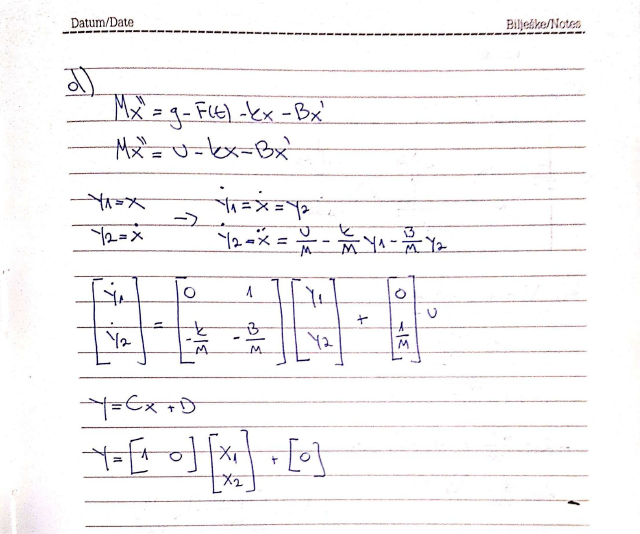 Datum/Date Bilješke/Notes
d)
Mx'' = g - F(t) - kx - Bx'
Mx'' = U - kx - Bx'
Y1 = x → Ẏ1 = ẋ = Y2
Y2 = ẋ Ẏ2 = ẍ = U/M - k/M Y1 - B/M Y2
[Ẏ1; Ẏ2] = [0 1; -k/M -B/M] [Y1; Y2] + [0; 1/M] U
Y = Cx + D
Y = [1 0] [X1; X2] + [0]